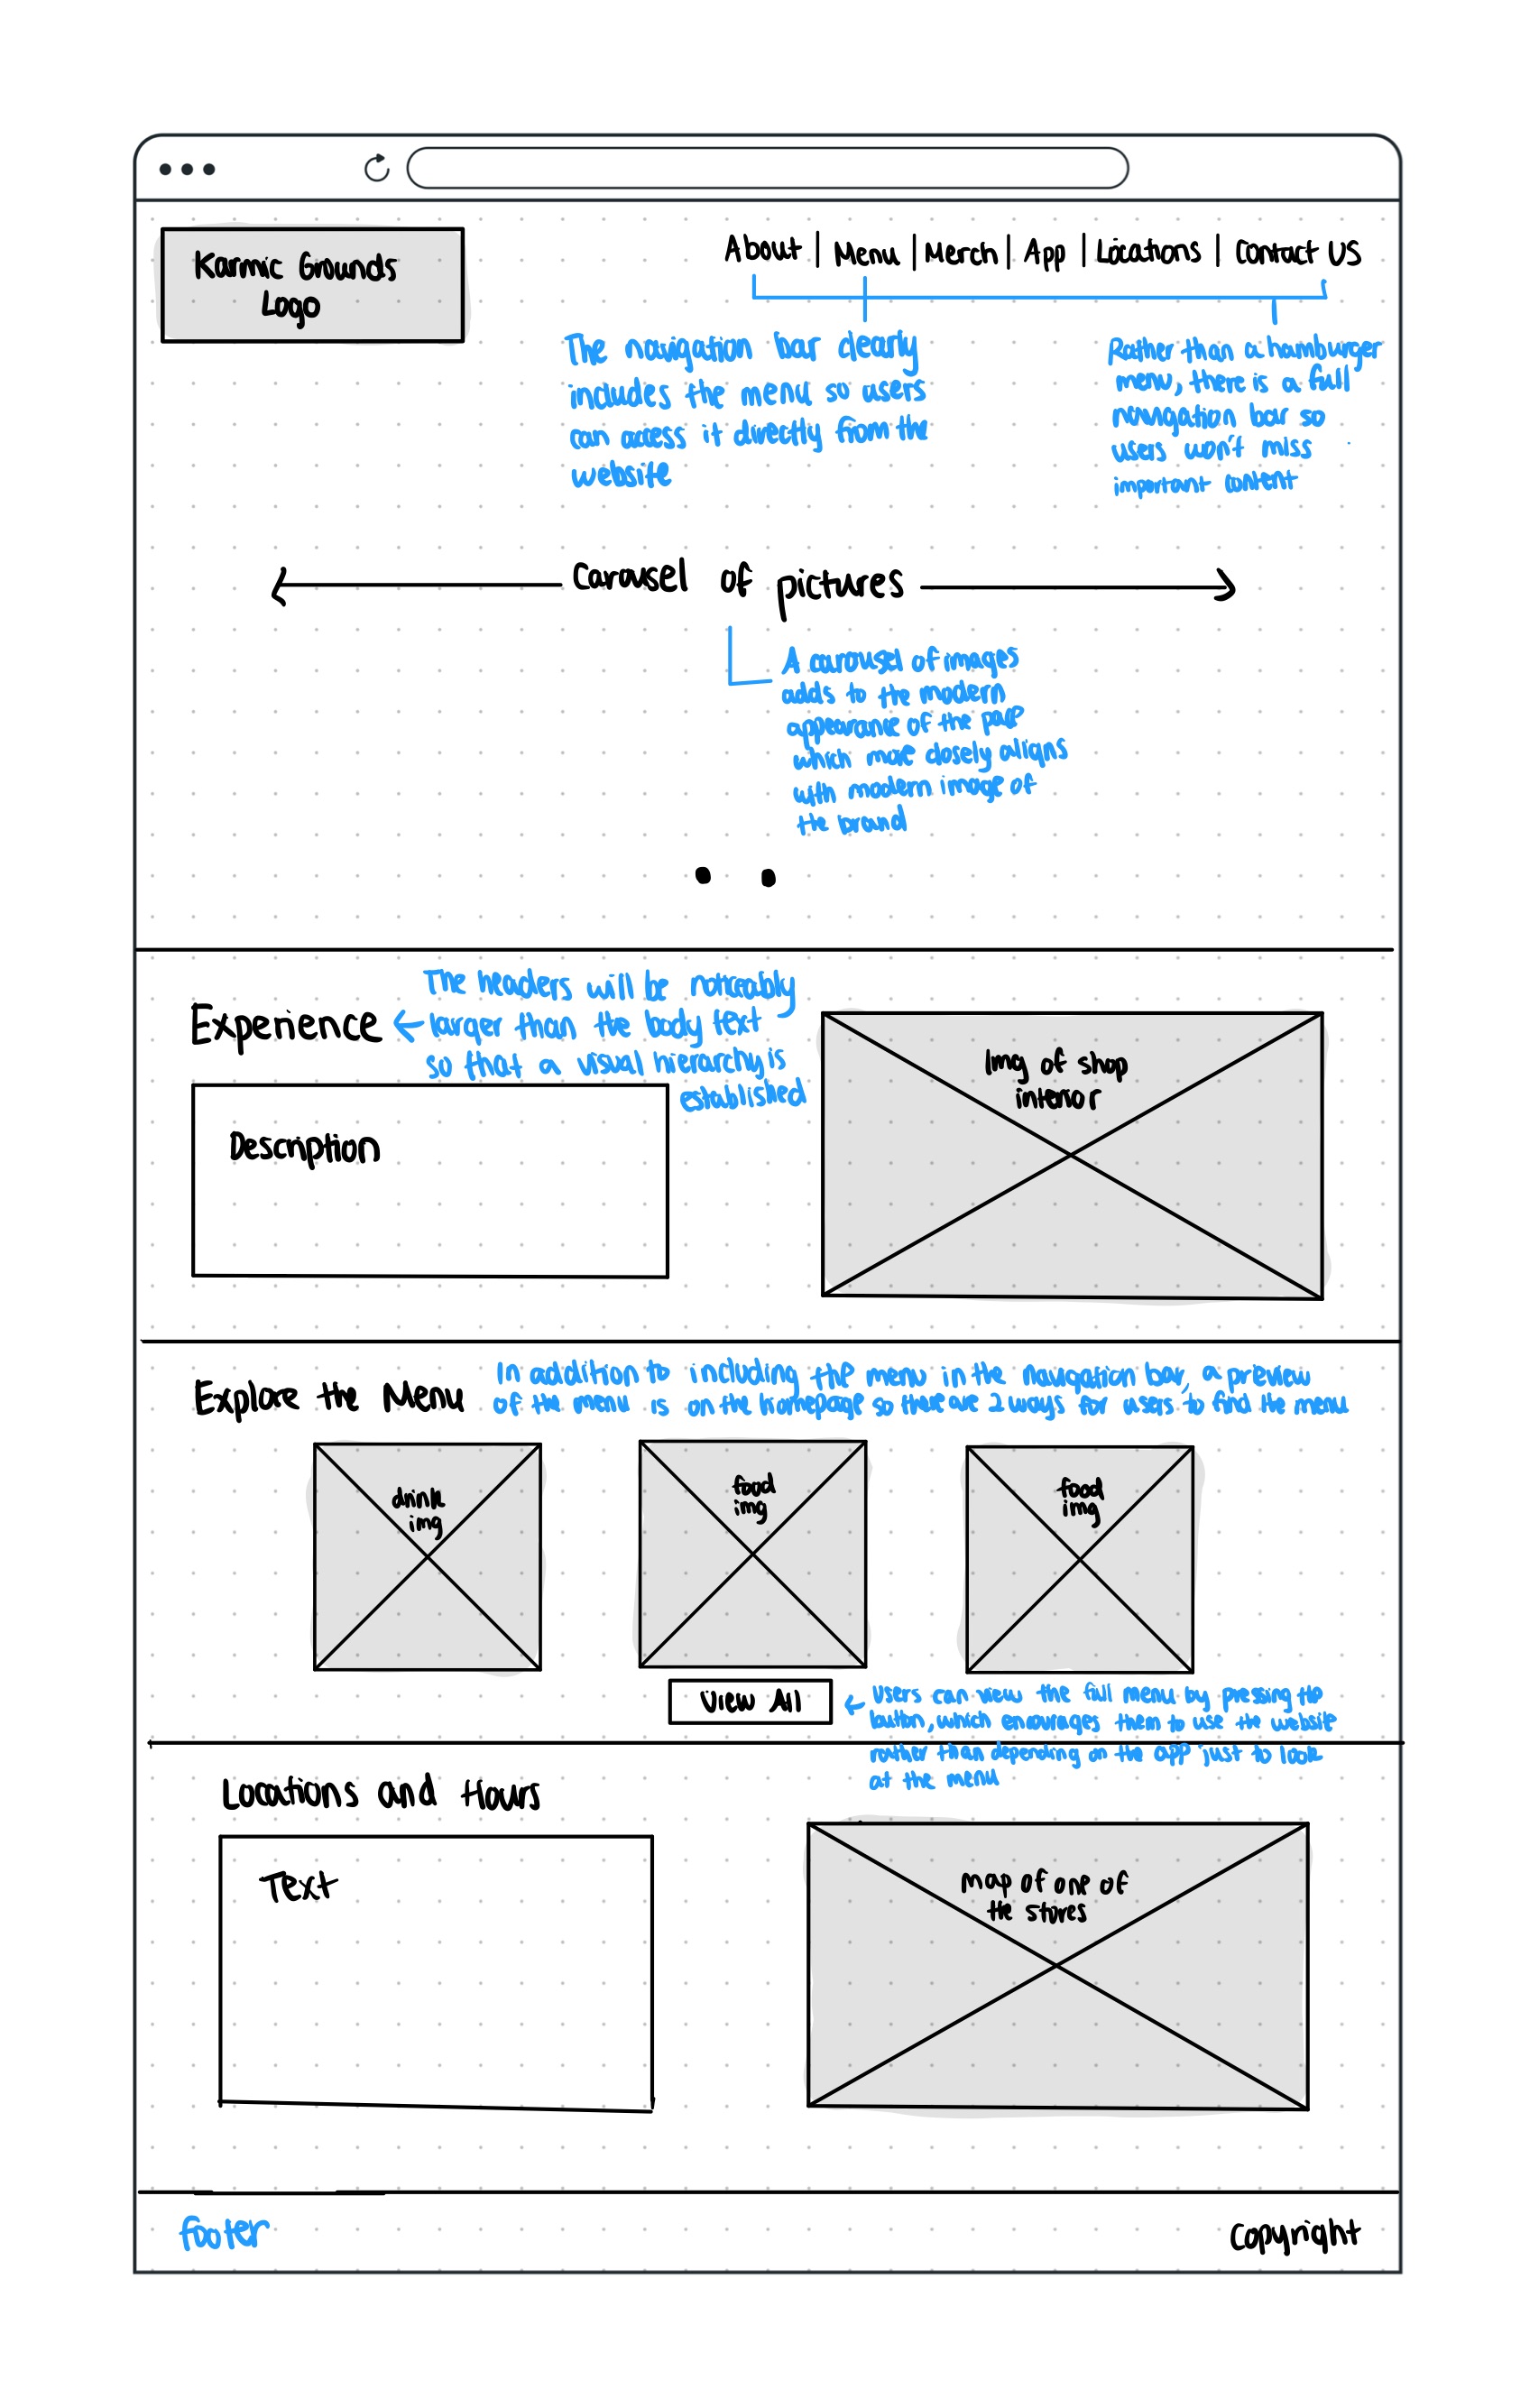 Karmic Grounds
Logo
About | Menu | Merch | App | Locations | Contact Us
The navigation bar clearly
includes the menu so users
can access it directly from the
website
Rather than a hamburger
menu, there is a full
navigation bar so
users won't miss
important content
Carousel of pictures
A carousel of images
adds to the modern
appearance of the page
which more closely aligns
with modern image of
the brand
Experience
The headers will be noticeably
larger than the body text
so that a visual hierarchy is
established
Description
Img of shop
interior
Explore the Menu
In addition to including the menu in the navigation bar, a preview
of the menu is on the homepage so there are 2 ways for users to find the menu
drink
img
food
img
food
img
View All
Users can view the full menu by pressing the
button, which encourages them to use the website
rather than depending on the app just to look
at the menu
Locations and Hours
Text
map of one of
the stores
footer
Copyright